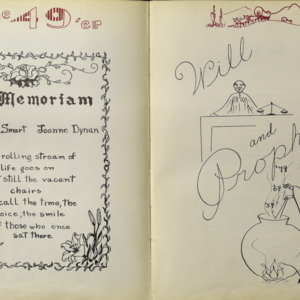 '49'er
Memoriam
Smart Joanne Dynan
rolling stream of
life goes on
still the vacant
chairs
call the time, the
oice, the smile
f those who once
sat there.
Will
and
Proph